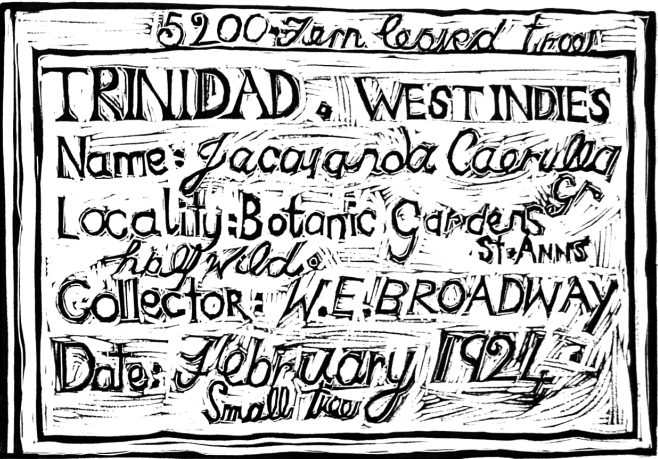 5200. Fern leaved tree
TRINIDAD. WEST INDIES
Name: Jacaranda Caerulea
Gr
Locality: Botanic Gardens
St. ANNS
half wild.
Collector: W.E. BROADWAY
Date: February 1924
Small tree